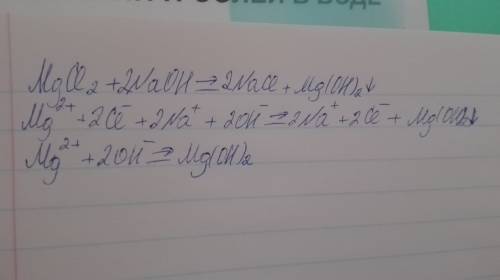 ЛЕЙ В ВОДЕ
MgCl₂ + 2NaOH ⇄ 2NaCl + Mg(OH)₂↓
Mg²⁺ + 2Cl⁻ + 2Na⁺ + 2OH⁻ ⇄ 2Na⁺ + 2Cl⁻ + Mg(OH)₂↓
Mg²⁺ + 2OH⁻ ⇄ Mg(OH)₂